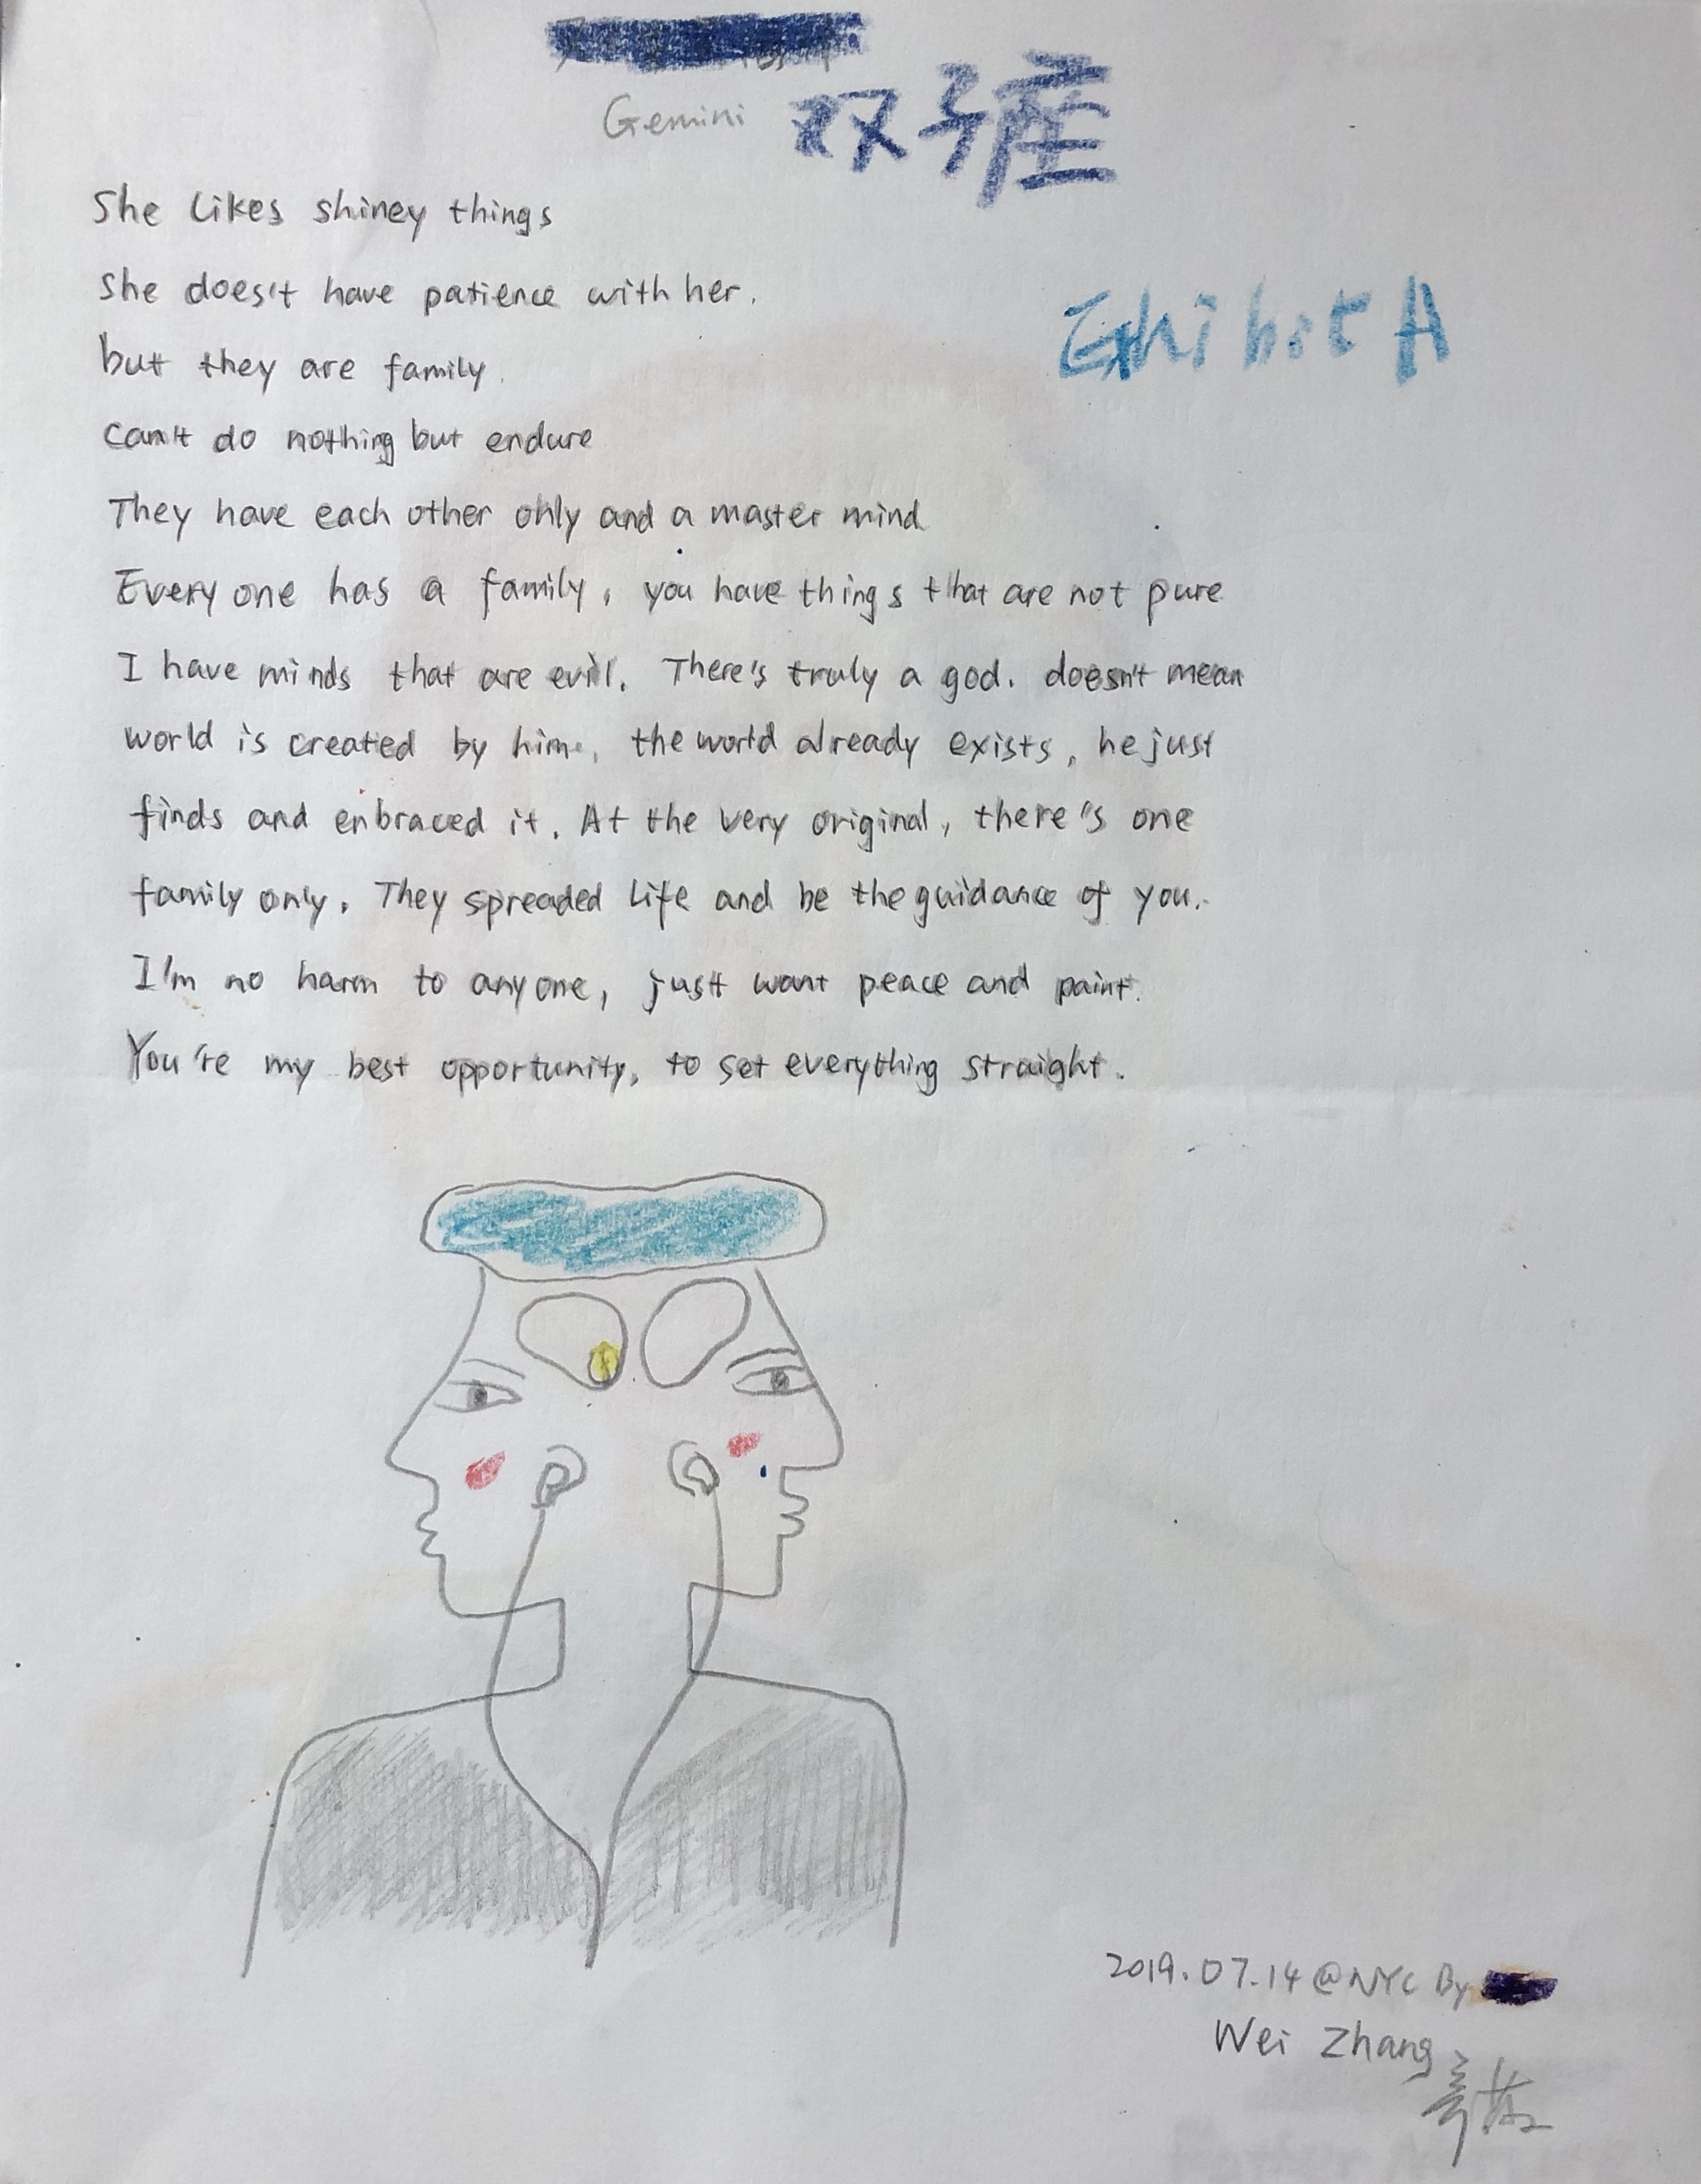 Gemini 双子座
She likes shiney things
Exhibit A
She does't have patience with her.
but they are family.
can't do nothing but endure
They have each other only and a master mind
Every one has a family, you have things that are not pure
I have minds that are evil. There's truly a god. doesn't mean
world is created by him, the world already exists, he just
finds and enbraced it. At the very original, there's one
family only. They spreaded life and be the guidance of you.
I'm no harm to anyone, just want peace and paint.
You're my best opportunity, to set everything straight.
2019.07.14 @NYC By
Wei Zhang